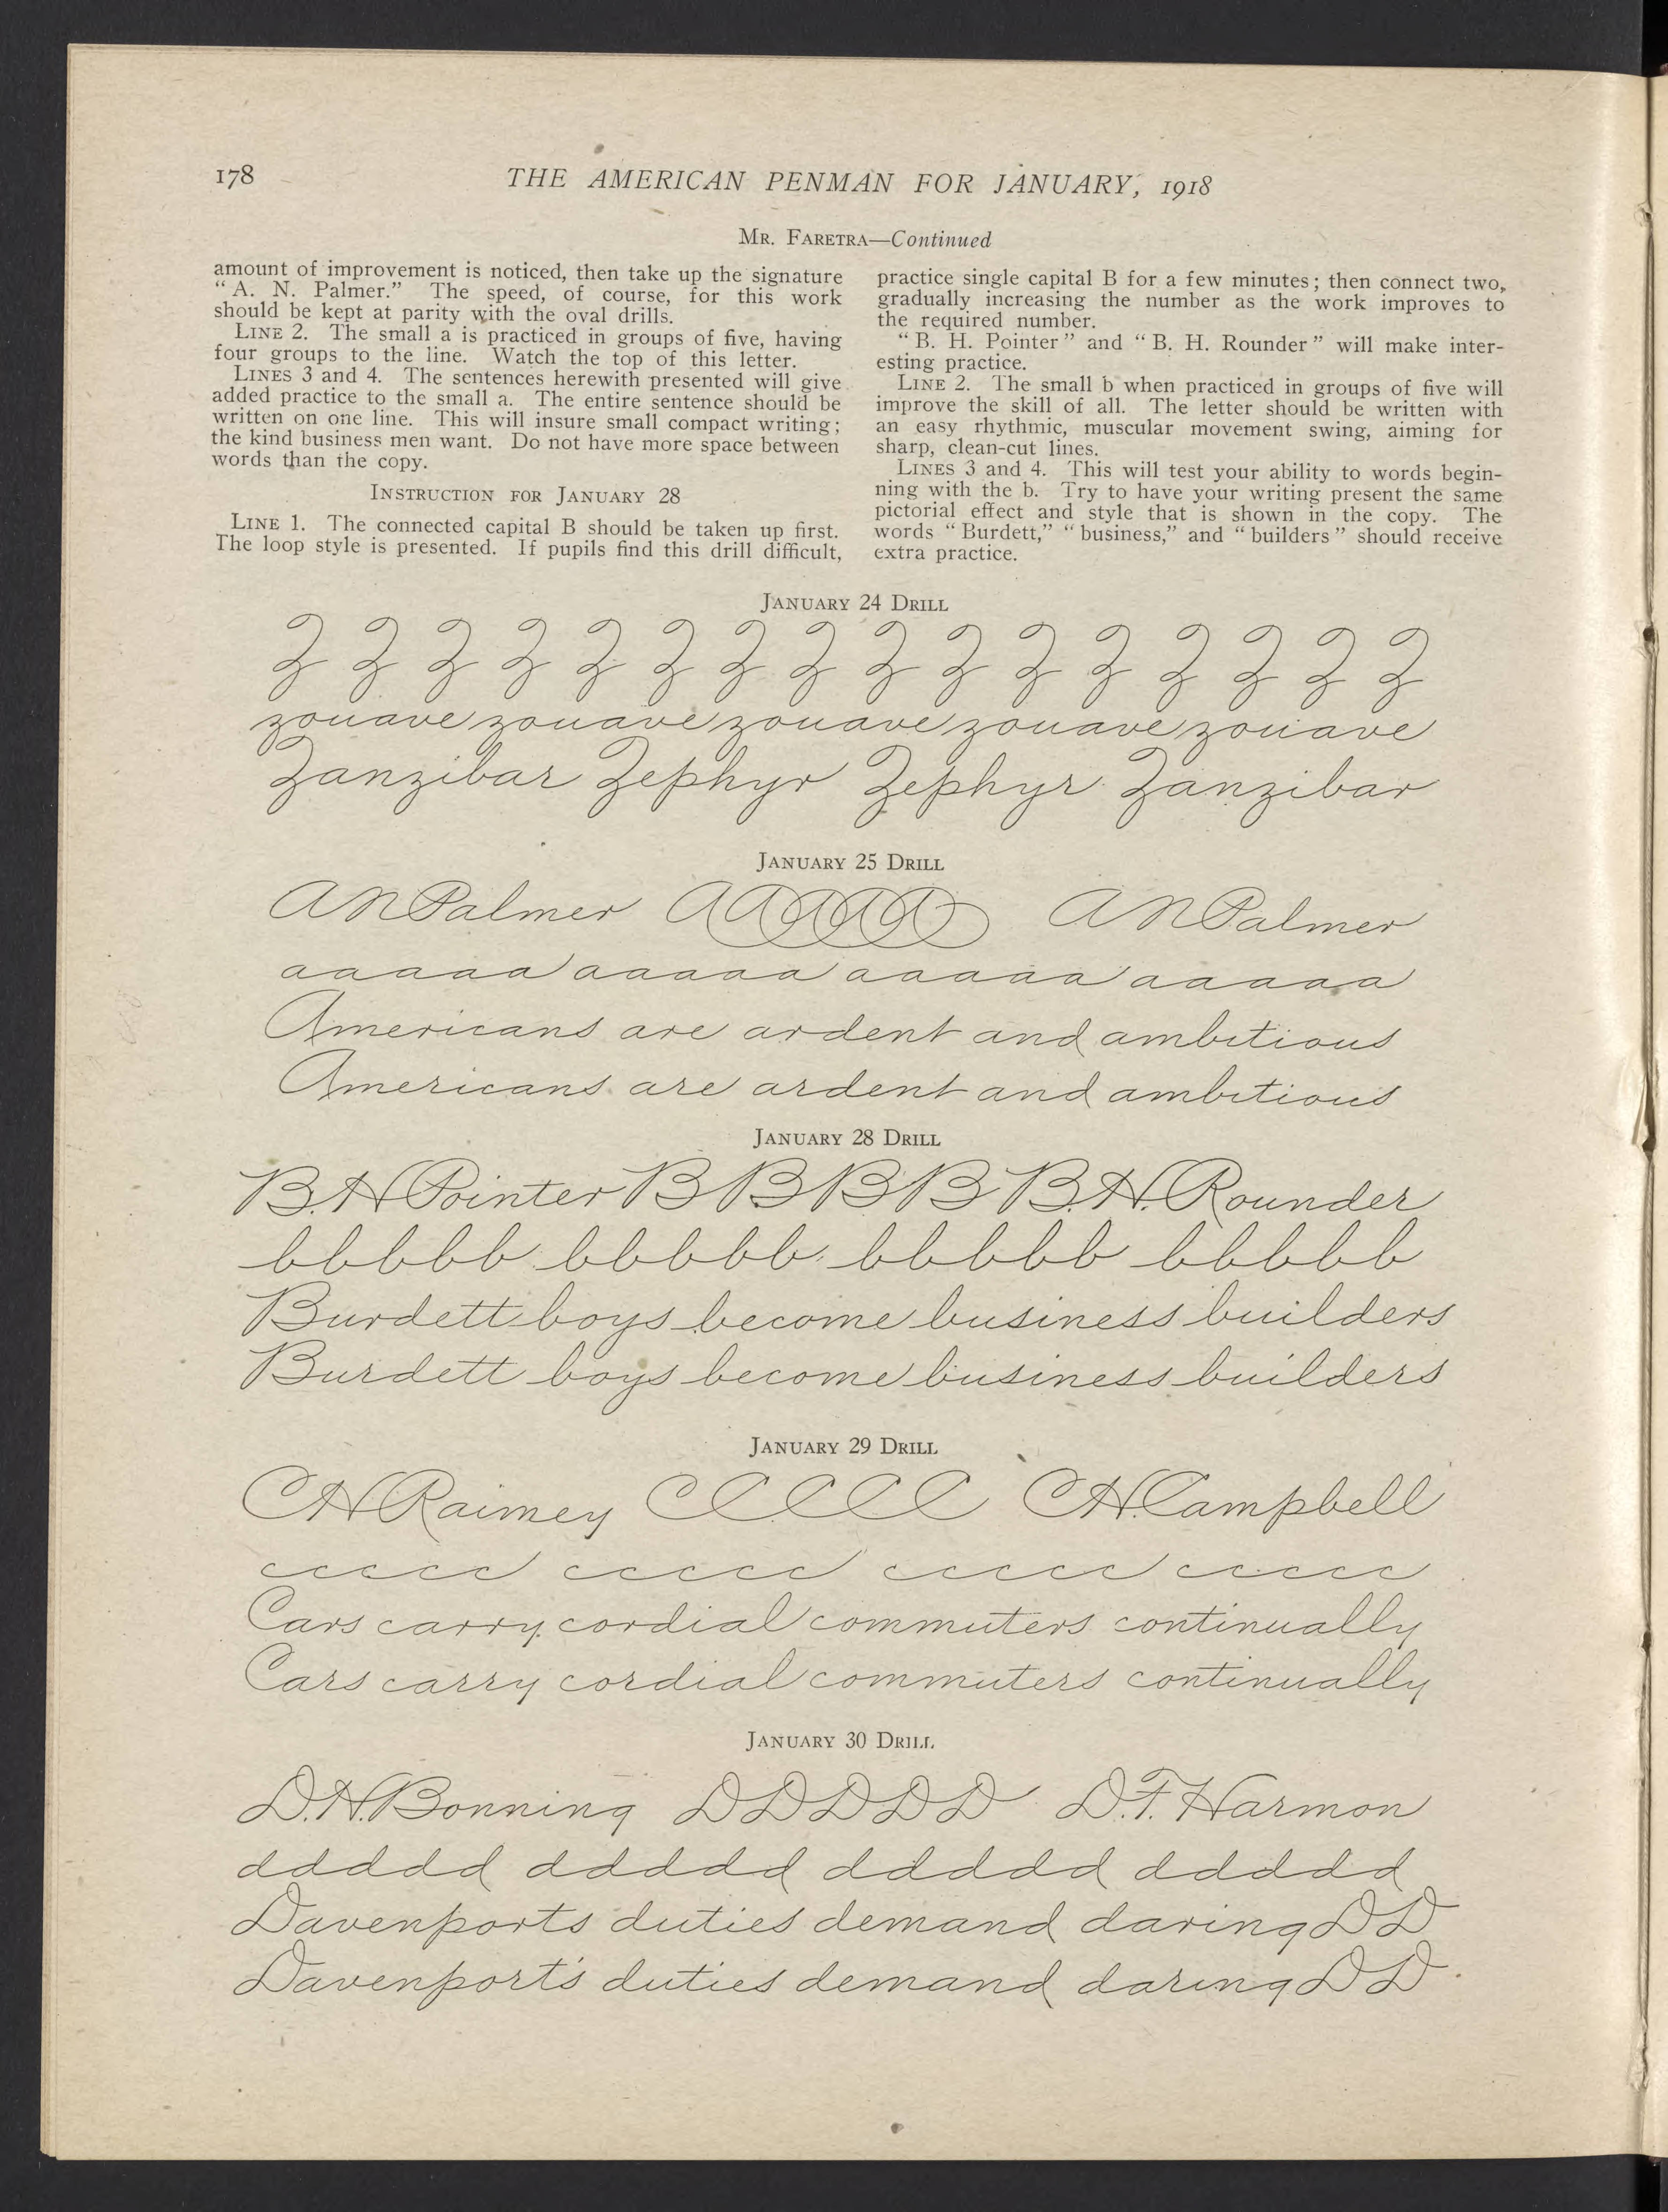 178
THE AMERICAN PENMAN FOR JANUARY, 1918
MR. FARETRA—Continued
amount of improvement is noticed, then take up the signature
“A. N. Palmer.” The speed, of course, for this work
should be kept at parity with the oval drills.
LINE 2. The small a is practiced in groups of five, having
four groups to the line. Watch the top of this letter.
LINES 3 and 4. The sentences herewith presented will give
added practice to the small a. The entire sentence should be
written on one line. This will insure small compact writing;
the kind business men want. Do not have more space between
words than the copy.
INSTRUCTION FOR JANUARY 28
LINE 1. The connected capital B should be taken up first.
The loop style is presented. If pupils find this drill difficult,
practice single capital B for a few minutes; then connect two,
gradually increasing the number as the work improves to
the required number.
“B. H. Pointer” and “B. H. Rounder” will make inter-
esting practice.
LINE 2. The small b when practiced in groups of five will
improve the skill of all. The letter should be written with
an easy rhythmic, muscular movement swing, aiming for
sharp, clean-cut lines.
LINES 3 and 4. This will test your ability to words begin-
ning with the b. Try to have your writing present the same
pictorial effect and style that is shown in the copy. The
words “Burdett,” “business,” and “builders” should receive
extra practice.
JANUARY 24 DRILL
Z Z Z Z Z Z Z Z Z Z Z Z Z Z Z Z
zouave zouave zouave zouave zouave
Zanzibar Zephyr Zephyr Zanzibar
JANUARY 25 DRILL
A N Palmer AAAAA A N Palmer
aaaaa aaaaa aaaaa aaaaa
Americans are ardent and ambitious
Americans are ardent and ambitious
JANUARY 28 DRILL
B. H Pointer B B B B B. H. Rounder
bbbbb bbbbb bbbbb bbbbb
Burdett boys become business builders
Burdett boys become business builders
JANUARY 29 DRILL
C H Raimey CCCCC C H. Campbell
ccccc ccccc ccccc ccccc
Cars carry cordial commuters continually
Cars carry cordial commuters continually
JANUARY 30 DRILL
D. H. Bonning DDDDD D. F. Harmon
ddddd ddddd ddddd ddddd
Davenports duties demand daring D D
Davenport's duties demand daring D D.